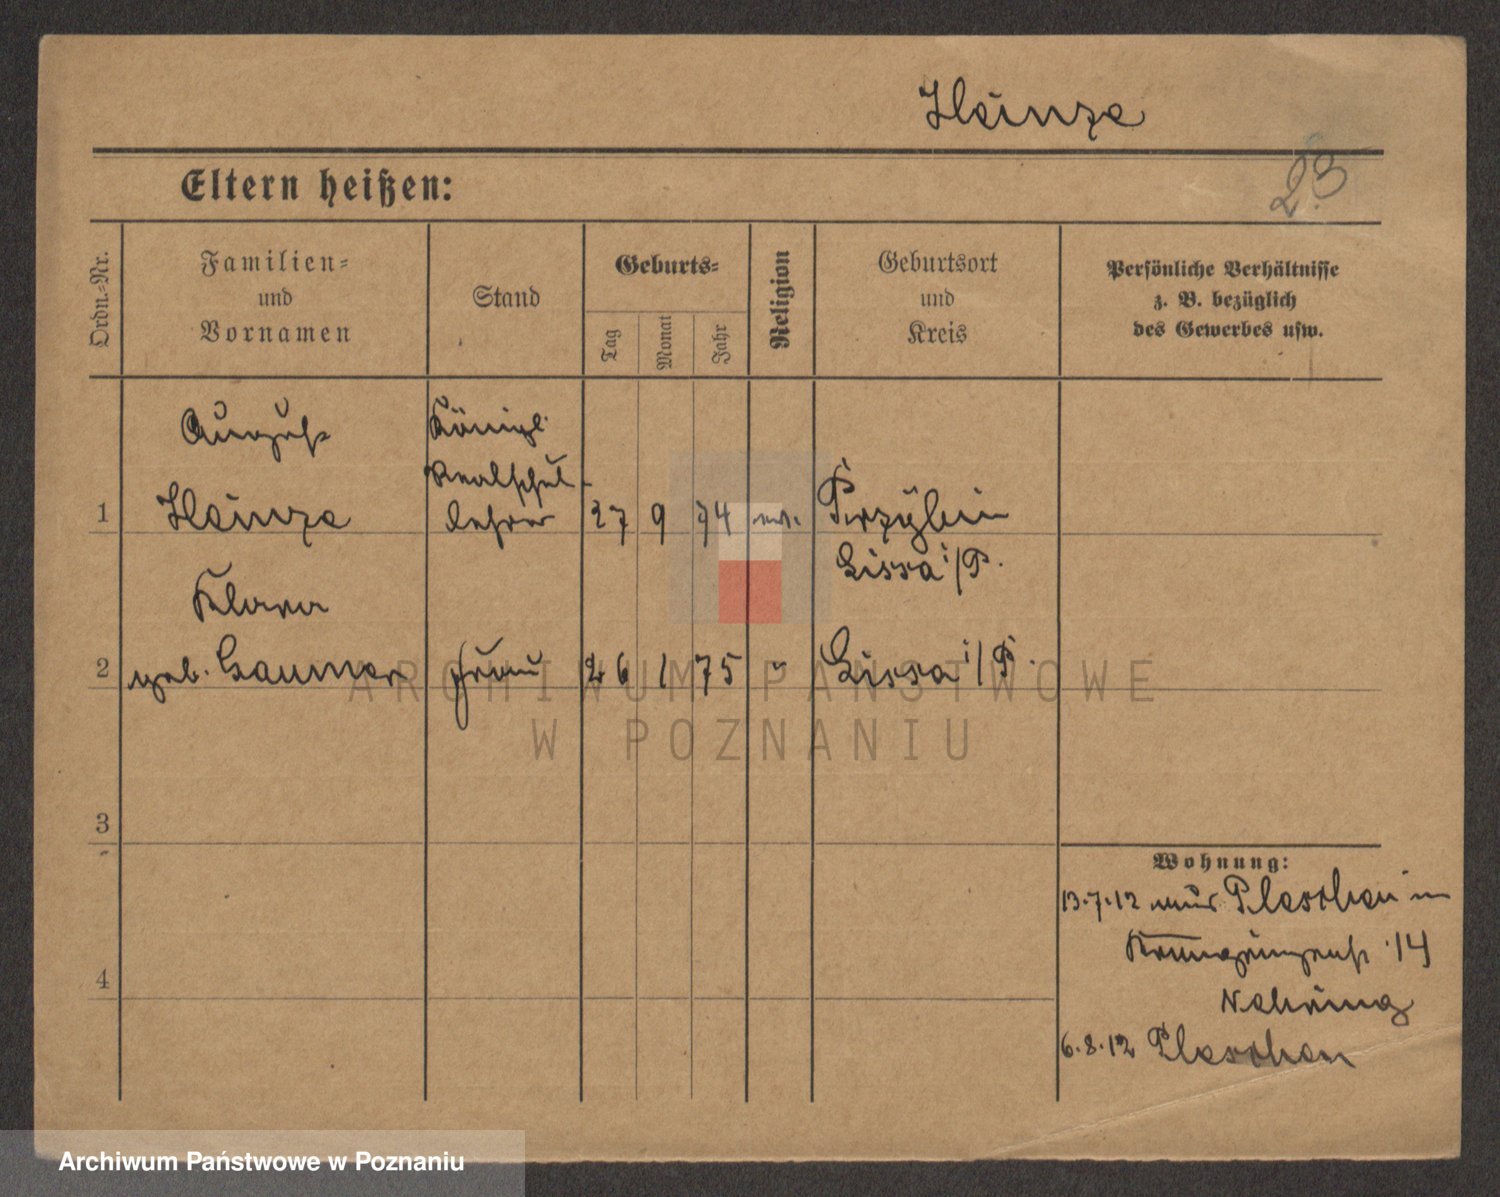 Heinze
23
Eltern heißen:
Ordn.-Nr.
Familien-
und
Vornamen
Stand
Geburts-
Tag
Monat
Jahr
Religion
Geburtsort
und
Kreis
Persönliche Verhältnisse
z. B. bezüglich
des Gewerbes usw.
August
Königl.
Realschul-
1 Heinze lehrer 27 9 74 ev. Przybin
Lissa i/P.
Klara
2 geb. Baumer Frau 26 1 75 " Lissa i/P.
3
4
Wohnung:
13.7.12 aus Pleschen in
14
Nehring
6.8.12 Pleschen
ARCHIWUM PAŃSTWOWE
W POZNANIU
Archiwum Państwowe w Poznaniu